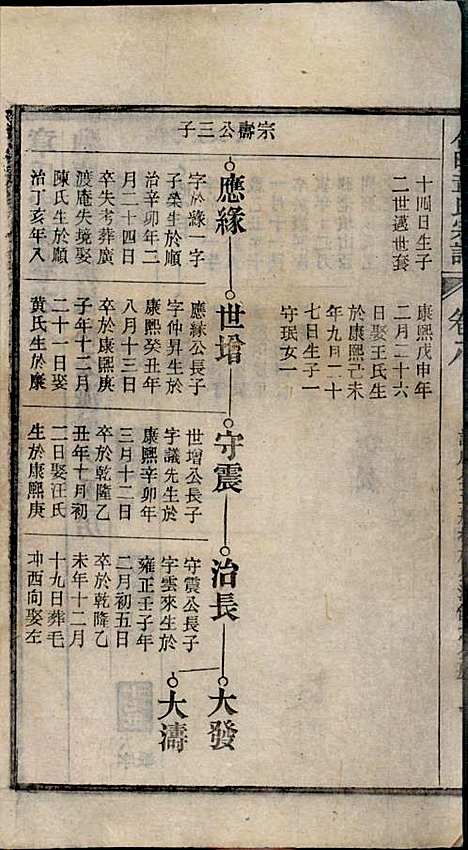 十四日生子
二世邁世套
康熙戊申年
二月二十六
日娶王氏生
於康熙己未
年九月二十
七日生子一
守珉女一
宗壽公三子
應緣
字於緣一字
子榮生於順
治辛卯年二
月二十四日
卒失考葬廣
渡庵失境娶
陳氏生於順
治丁亥年八
世增
應緣公長子
字仲昇生於
康熙癸丑年
八月十三日
卒於康熙庚
子年十二月
二十一日娶
黄氏生於康
守震
世增公長子
字議先生於
康熙辛卯年
三月十二日
卒於乾隆乙
丑年十月初
二日娶汪氏
生於康熙庚
治長
守震公長子
字雲來生於
雍正壬子年
二月初五日
卒於乾隆乙
未年十二月
十九日葬毛
坤西向娶左
大發
大濤